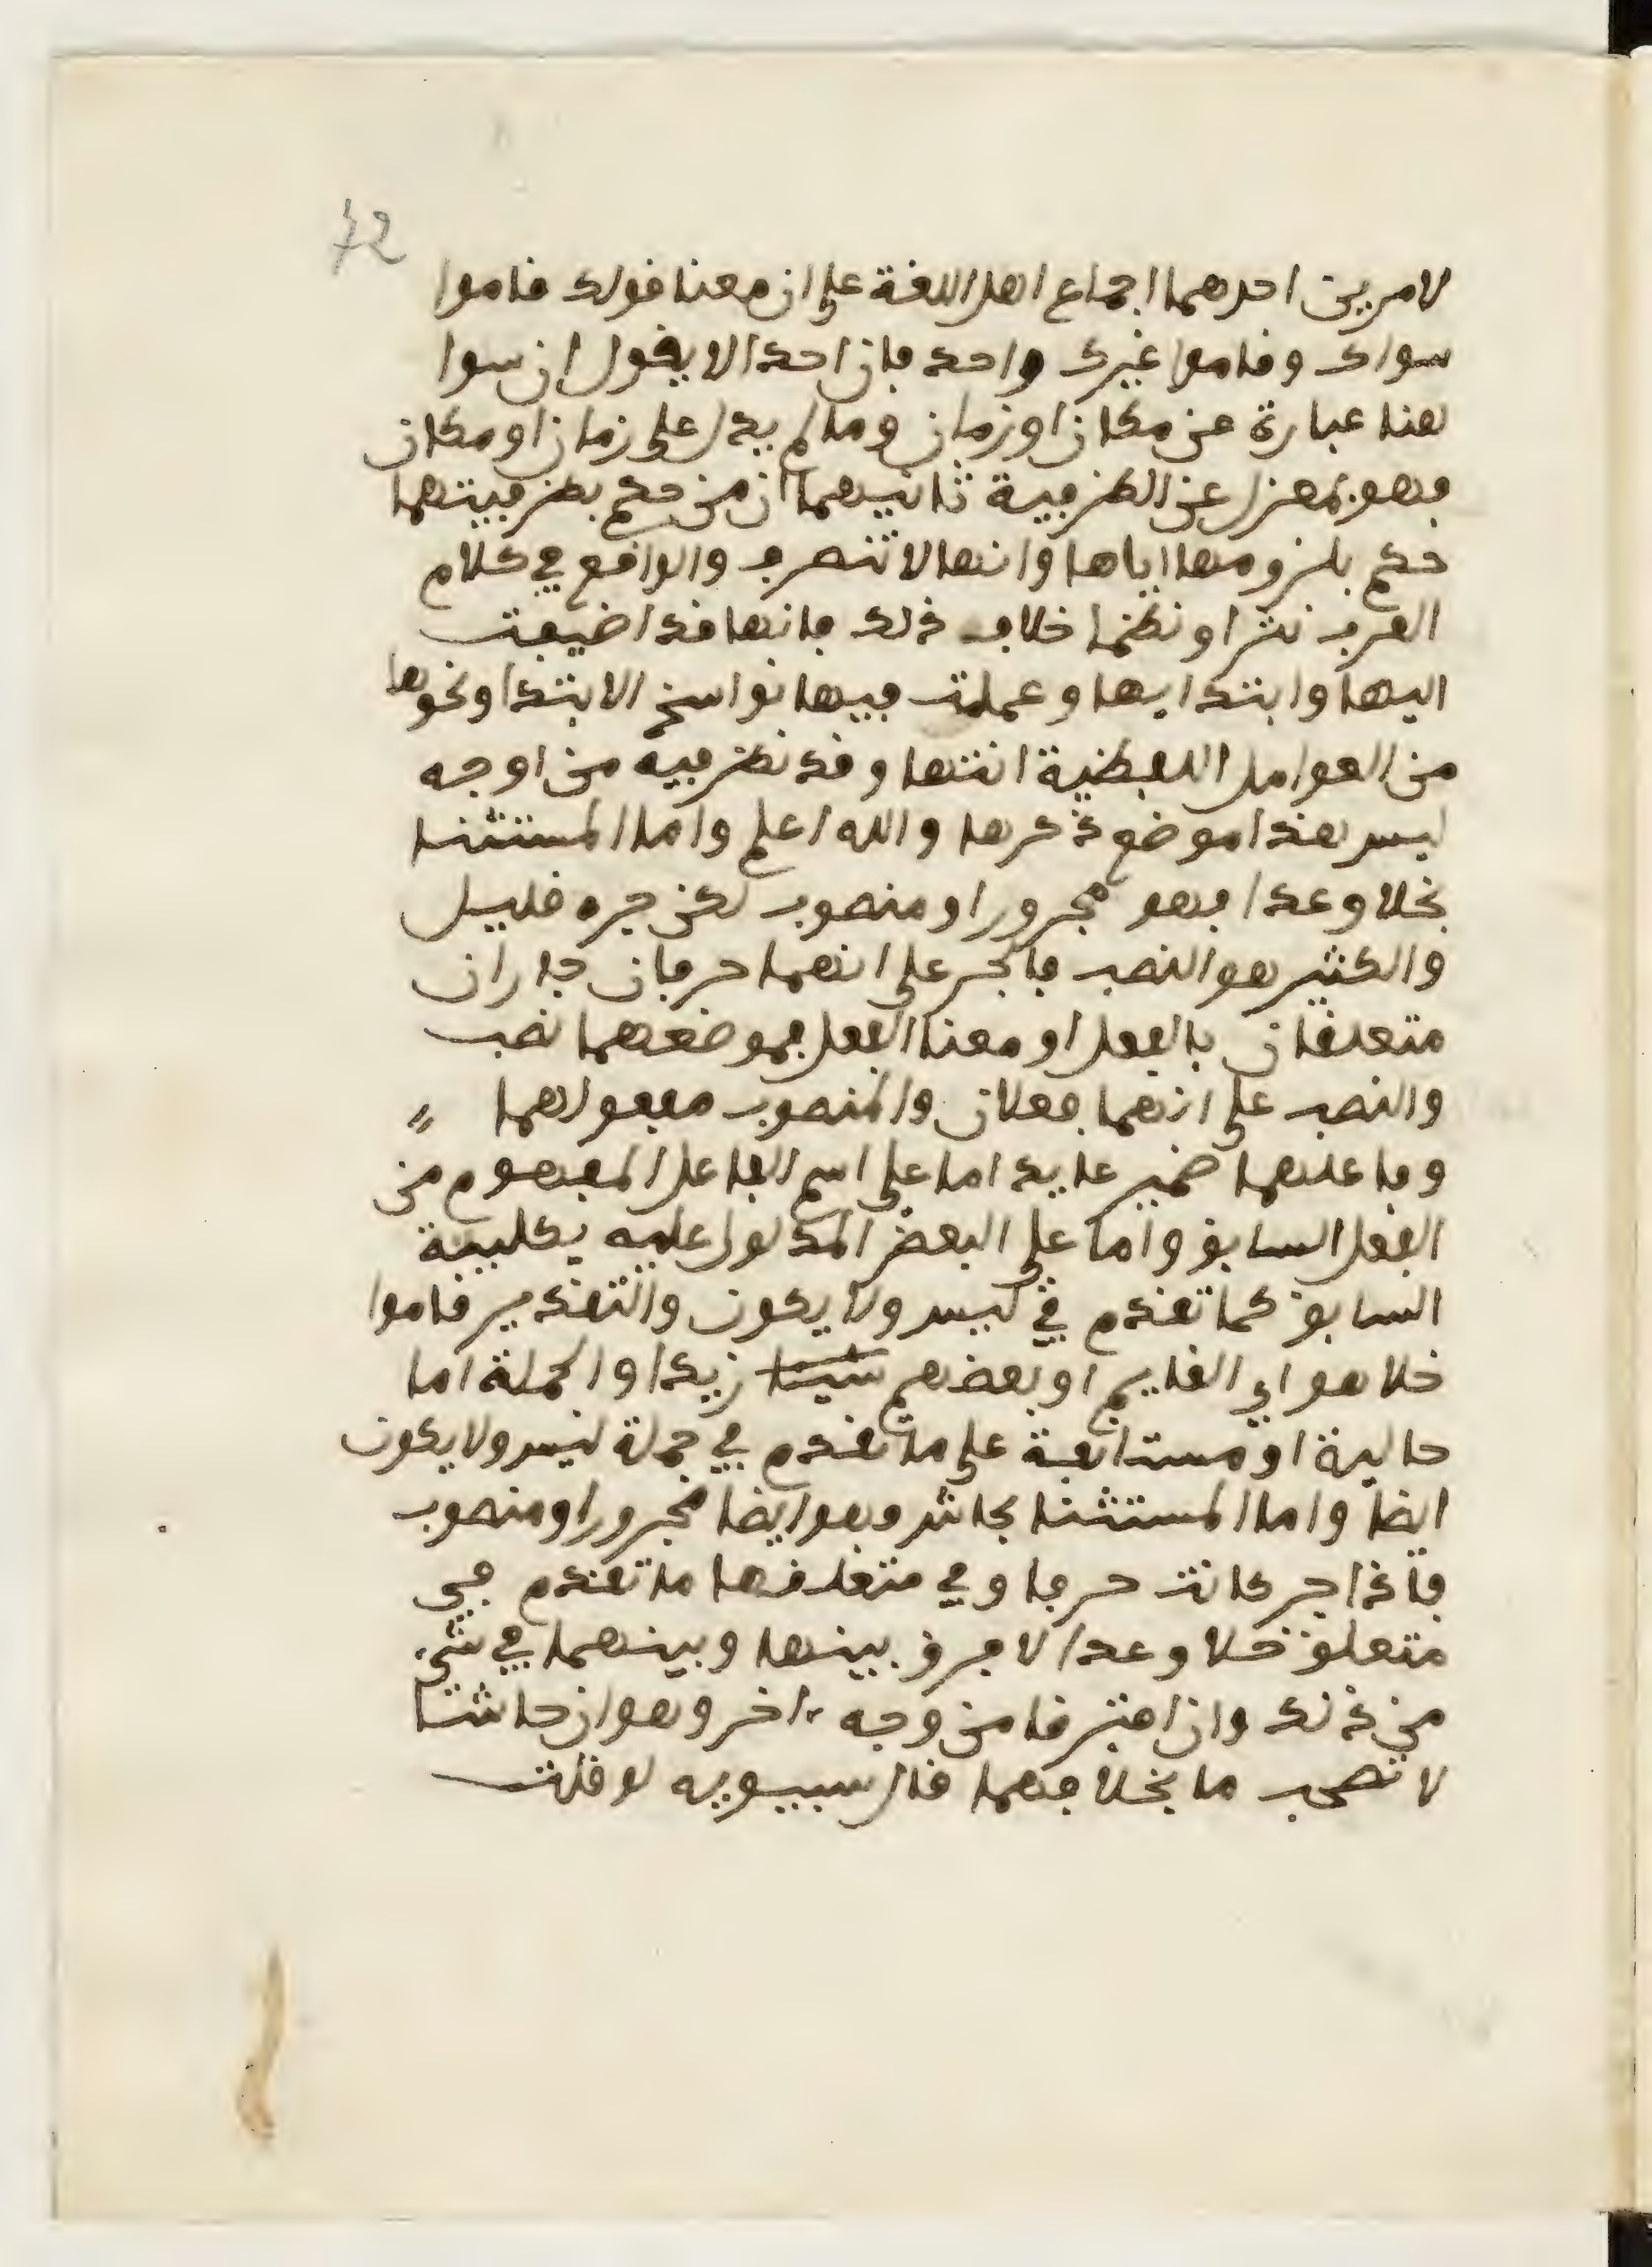 72
لامرين احدهما اجماع اهل اللغة على ان معنا قولك قاموا
سواك وقاموا غيرك واحد فان احدا لا يقول ان سوا
هنا عبارة عن مكان او زمان وما لم يدل على زمان او مكان
فهو بمعزل عن الظرفية ثانيهما ان من حكم بظرفيتهما
حكم بلزومها اياها وانها لا تتصرف والواقع في كلام
العرب نثرا ونظما خلاف ذلك فانها قد اضيفت
اليها وابتدا بها وعملت فيها نواسخ الابتدا ونحوها
من العوامل اللفظية انتها وقد نظر فيه من اوجه
ليس هذا موضوع ذكرها والله اعلم واما المستثنا
بخلا وعدا فهو مجرور او منصوب لكن جره قليل
والكثير هو النصب فالجر على انهما حرفان جاران
متعلقان بالفعل او معنا الفعل فموضعهما نصب
والنصب على انهما فعلان والمنصوب مفعولهما
وفاعلهما ضمير عايد اما على اسم الفاعل المفهوم من
الفعل السابق واما على البعض المدلول عليه بكلية
السابق كما تقدم في ليس ولا يكون والتقدير قاموا
خلا هو اي القايم او بعضهم شيئا زيدا والجملة اما
حالية او مستانفة على ما تقدم في جملة ليس ولا يكون
ايضا واما المستثنا بحاشا وهو ايضا مجرور او منصوب
فاذا جر كانت حرفا وفي متعلقها ما تقدم في
متعلق خلا وعدا لا فرق بينها وبينهما في شيء
من ذلك وان افترقا من وجه اخر وهو ان حاشا
لا تصحب ما بخلافهما قال سيبويه لو قلت